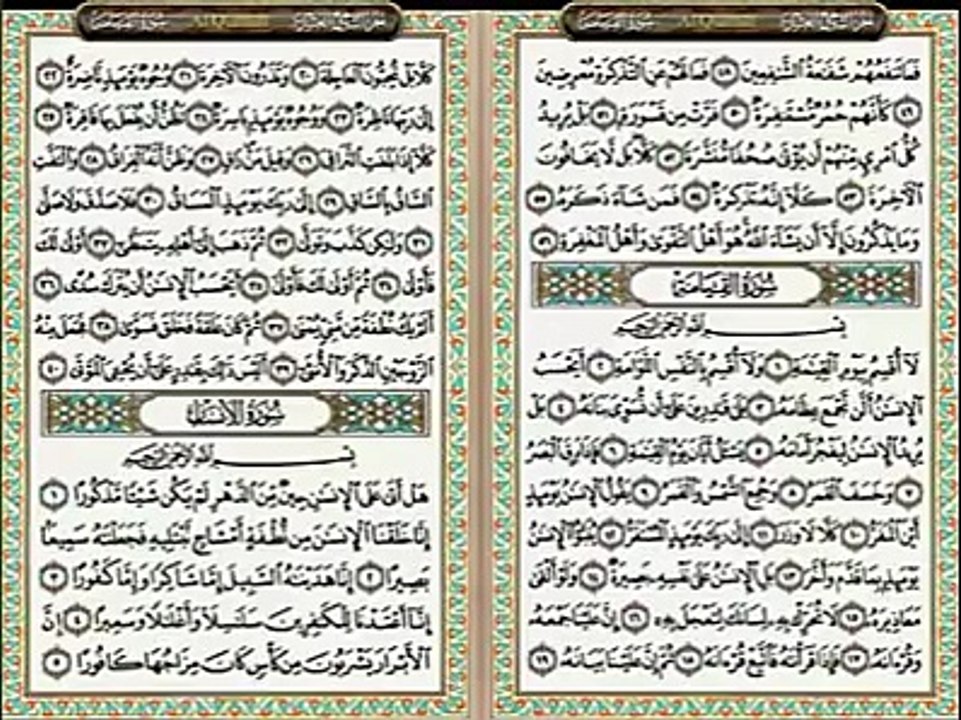 فَمَا تَنفَعُهُمْ شَفَاعَةُ الشَّافِعِينَ ٤٨ فَمَا لَهُمْ عَنِ التَّذْكِرَةِ مُعْرِضِينَ
٤٩ كَأَنَّهُمْ حُمُرٌ مُّسْتَنفِرَةٌ ٥٠ فَرَّتْ مِن قَسْوَرَةٍ ٥١ بَلْ يُرِيدُ
كُلُّ امْرِئٍ مِّنْهُمْ أَن يُؤْتَىٰ صُحُفًا مُّنَشَّرَةً ٥٢ كَلَّا بَل لَّا يَخَافُونَ
الْآخِرَةَ ٥٣ كَلَّا إِنَّهُ تَذْكِرَةٌ ٥٤ فَمَن شَاءَ ذَكَرَهُ ٥٥
وَمَا يَذْكُرُونَ إِلَّا أَن يَشَاءَ اللَّهُ هُوَ أَهْلُ التَّقْوَىٰ وَأَهْلُ الْمَغْفِرَةِ ٥٦
سُورَةُ الْقِيَامَةِ
بِسْمِ اللَّهِ الرَّحْمَٰنِ الرَّحِيمِ
لَا أُقْسِمُ بِيَوْمِ الْقِيَامَةِ ١ وَلَا أُقْسِمُ بِالنَّفْسِ اللَّوَّامَةِ ٢ أَيَحْسَبُ
الْإِنسَانُ أَلَّن نَّجْمَعَ عِظَامَهُ ٣ بَلَىٰ قَادِرِينَ عَلَىٰ أَن نُّسَوِّيَ بَنَانَهُ ٤ بَلْ
يُرِيدُ الْإِنسَانُ لِيَفْجُرَ أَمَامَهُ ٥ يَسْأَلُ أَيَّانَ يَوْمُ الْقِيَامَةِ ٦ فَإِذَا بَرِقَ الْبَصَرُ
٧ وَخَسَفَ الْقَمَرُ ٨ وَجُمِعَ الشَّمْسُ وَالْقَمَرُ ٩ يَقُولُ الْإِنسَانُ يَوْمَئِذٍ
أَيْنَ الْمَفَرُّ ١٠ كَلَّا لَا وَزَرَ ١١ إِلَىٰ رَبِّكَ يَوْمَئِذٍ الْمُسْتَقَرُّ ١٢ يُنَبَّأُ الْإِنسَانُ
يَوْمَئِذٍ بِمَا قَدَّمَ وَأَخَّرَ ١٣ بَلِ الْإِنسَانُ عَلَىٰ نَفْسِهِ بَصِيرَةٌ ١٤ وَلَوْ أَلْقَىٰ
مَعَاذِيرَهُ ١٥ لَا تُحَرِّكْ بِهِ لِسَانَكَ لِتَعْجَلَ بِهِ ١٦ إِنَّ عَلَيْنَا جَمْعَهُ
وَقُرْآنَهُ ١٧ فَإِذَا قَرَأْنَاهُ فَاتَّبِعْ قُرْآنَهُ ١٨ ثُمَّ إِنَّ عَلَيْنَا بَيَانَهُ ١٩
كَلَّا بَلْ تُحِبُّونَ الْعَاجِلَةَ ٢٠ وَتَذَرُونَ الْآخِرَةَ ٢١ وُجُوهٌ يَوْمَئِذٍ نَّاضِرَةٌ ٢٢
إِلَىٰ رَبِّهَا نَاظِرَةٌ ٢٣ وَوُجُوهٌ يَوْمَئِذٍ بَاسِرَةٌ ٢٤ تَظُنُّ أَن يُفْعَلَ بِهَا فَاقِرَةٌ ٢٥
كَلَّا إِذَا بَلَغَتِ التَّرَاقِيَ ٢٦ وَقِيلَ مَنْ رَاقٍ ٢٧ وَظَنَّ أَنَّهُ الْفِرَاقُ ٢٨ وَالْتَفَّتِ
السَّاقُ بِالسَّاقِ ٢٩ إِلَىٰ رَبِّكَ يَوْمَئِذٍ الْمَسَاقُ ٣٠ فَلَا صَدَّقَ وَلَا صَلَّىٰ
٣١ وَلَٰكِن كَذَّبَ وَتَوَلَّىٰ ٣٢ ثُمَّ ذَهَبَ إِلَىٰ أَهْلِهِ يَتَمَطَّىٰ ٣٣ أَوْلَىٰ لَكَ
فَأَوْلَىٰ ٣٤ ثُمَّ أَوْلَىٰ لَكَ فَأَوْلَىٰ ٣٥ أَيَحْسَبُ الْإِنسَانُ أَن يُتْرَكَ سُدًى ٣٦
أَلَمْ يَكُ نُطْفَةً مِّن مَّنِيٍّ يُمْنَىٰ ٣٧ ثُمَّ كَانَ عَلَقَةً فَخَلَقَ فَسَوَّىٰ ٣٨ فَجَعَلَ مِنْهُ
الزَّوْجَيْنِ الذَّكَرَ وَالْأُنثَىٰ ٣٩ أَلَيْسَ ذَٰلِكَ بِقَادِرٍ عَلَىٰ أَن يُحْيِيَ الْمَوْتَىٰ ٤٠
سُورَةُ الْإِنسَانِ
بِسْمِ اللَّهِ الرَّحْمَٰنِ الرَّحِيمِ
هَلْ أَتَىٰ عَلَى الْإِنسَانِ حِينٌ مِّنَ الدَّهْرِ لَمْ يَكُن شَيْئًا مَّذْكُورًا ١
إِنَّا خَلَقْنَا الْإِنسَانَ مِن نُّطْفَةٍ أَمْشَاجٍ نَّبْتَلِيهِ فَجَعَلْنَاهُ سَمِيعًا
بَصِيرًا ٢ إِنَّا هَدَيْنَاهُ السَّبِيلَ إِمَّا شَاكِرًا وَإِمَّا كَفُورًا ٣
إِنَّا أَعْتَدْنَا لِلْكَافِرِينَ سَلَاسِلَا وَأَغْلَالًا وَسَعِيرًا ٤ إِنَّ
الْأَبْرَارَ يَشْرَبُونَ مِن كَأْسٍ كَانَ مِزَاجُهَا كَافُورًا ٥